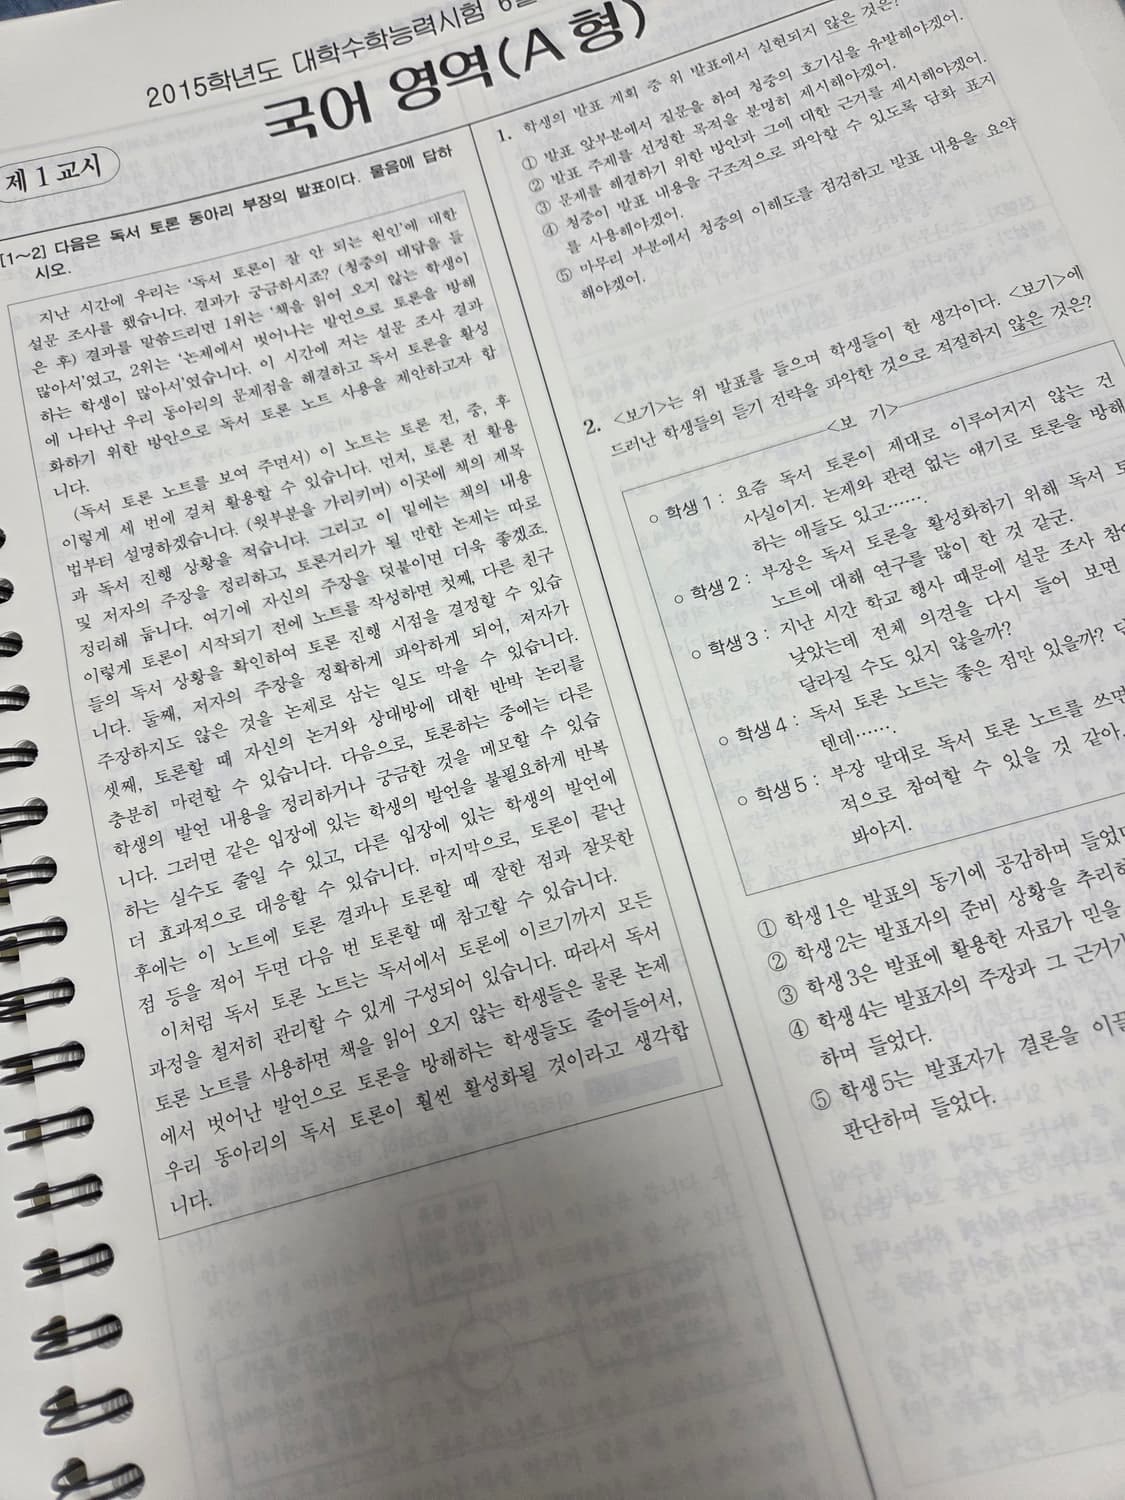 2015학년도 대학수학능력시험 6월
국어 영역(A 형)
제 1 교시
[1~2] 다음은 독서 토론 동아리 부장의 발표이다. 물음에 답하
시오.
지난 시간에 우리는 ‘독서 토론이 잘 안 되는 원인’에 대한
설문 조사를 했습니다. 결과가 궁금하시죠? (청중의 대답을 들
은 후) 결과를 말씀드리면 1위는 ‘책을 읽어 오지 않는 학생이
많아서’였고, 2위는 ‘논제에서 벗어나는 발언으로 토론을 방해
하는 학생이 많아서’였습니다. 이 시간에 저는 설문 조사 결과
에 나타난 우리 동아리의 문제점을 해결하고 독서 토론을 활성
화하기 위한 방안으로 독서 토론 노트 사용을 제안하고자 합
니다.
(독서 토론 노트를 보여 주면서) 이 노트는 토론 전, 중, 후
이렇게 세 번에 걸쳐 활용할 수 있습니다. 먼저, 토론 전 활용
법부터 설명하겠습니다. (윗부분을 가리키며) 이곳에 책의 제목
과 독서 진행 상황을 적습니다. 그리고 이 밑에는 책의 내용
및 저자의 주장을 정리하고, 토론거리가 될 만한 논제는 따로
정리해 둡니다. 여기에 자신의 주장을 덧붙이면 더욱 좋겠죠.
이렇게 토론이 시작되기 전에 노트를 작성하면 첫째, 다른 친구
들의 독서 상황을 확인하여 토론 진행 시점을 결정할 수 있습
니다. 둘째, 저자의 주장을 정확하게 파악하게 되어, 저자가
주장하지도 않은 것을 논제로 삼는 일도 막을 수 있습니다.
셋째, 토론할 때 자신의 논거와 상대방에 대한 반박 논리를
충분히 마련할 수 있습니다. 다음으로, 토론하는 중에는 다른
학생의 발언 내용을 정리하거나 궁금한 것을 메모할 수 있습
니다. 그러면 같은 입장에 있는 학생의 발언을 불필요하게 반복
하는 실수도 줄일 수 있고, 다른 입장에 있는 학생의 발언에
더 효과적으로 대응할 수 있습니다. 마지막으로, 토론이 끝난
후에는 이 노트에 토론 결과나 토론할 때 잘한 점과 잘못한
점 등을 적어 두면 다음 번 토론할 때 참고할 수 있습니다.
이처럼 독서 토론 노트는 독서에서 토론에 이르기까지 모든
과정을 철저히 관리할 수 있게 구성되어 있습니다. 따라서 독서
토론 노트를 사용하면 책을 읽어 오지 않는 학생들은 물론 논제
에서 벗어난 발언으로 토론을 방해하는 학생들도 줄어들어서,
우리 동아리의 독서 토론이 훨씬 활성화될 것이라고 생각합
니다.
1. 학생의 발표 계획 중 위 발표에서 실현되지 않은 것은?
① 발표 앞부분에서 질문을 하여 청중의 호기심을 유발해야겠어.
② 발표 주제를 선정한 목적을 분명히 제시해야겠어.
③ 문제를 해결하기 위한 방안과 그에 대한 근거를 제시해야겠어.
④ 청중이 발표 내용을 구조적으로 파악할 수 있도록 담화 표지
를 사용해야겠어.
⑤ 마무리 부분에서 청중의 이해도를 점검하고 발표 내용을 요약
해야겠어.
2. <보기>는 위 발표를 들으며 학생들이 한 생각이다. <보기>에
드러난 학생들의 듣기 전략을 파악한 것으로 적절하지 않은 것은?
<보 기>
○ 학생 1 : 요즘 독서 토론이 제대로 이루어지지 않는 건
사실이지. 논제와 관련 없는 얘기로 토론을 방해
하는 애들도 있고…….
○ 학생 2 : 부장은 독서 토론을 활성화하기 위해 독서 토
노트에 대해 연구를 많이 한 것 같군.
○ 학생 3 : 지난 시간 학교 행사 때문에 설문 조사 참여
낮았는데 전체 의견을 다시 들어 보면
달라질 수도 있지 않을까?
○ 학생 4 : 독서 토론 노트는 좋은 점만 있을까?
텐데…….
○ 학생 5 : 부장 말대로 독서 토론 노트를 쓰면
적으로 참여할 수 있을 것 같아.
봐야지.
① 학생 1은 발표의 동기에 공감하며 들었다
② 학생 2는 발표자의 준비 상황을 추리하
③ 학생 3은 발표에 활용한 자료가 믿을
④ 학생 4는 발표자의 주장과 그 근거가
하며 들었다.
⑤ 학생 5는 발표자가 결론을 이끌
판단하며 들었다.